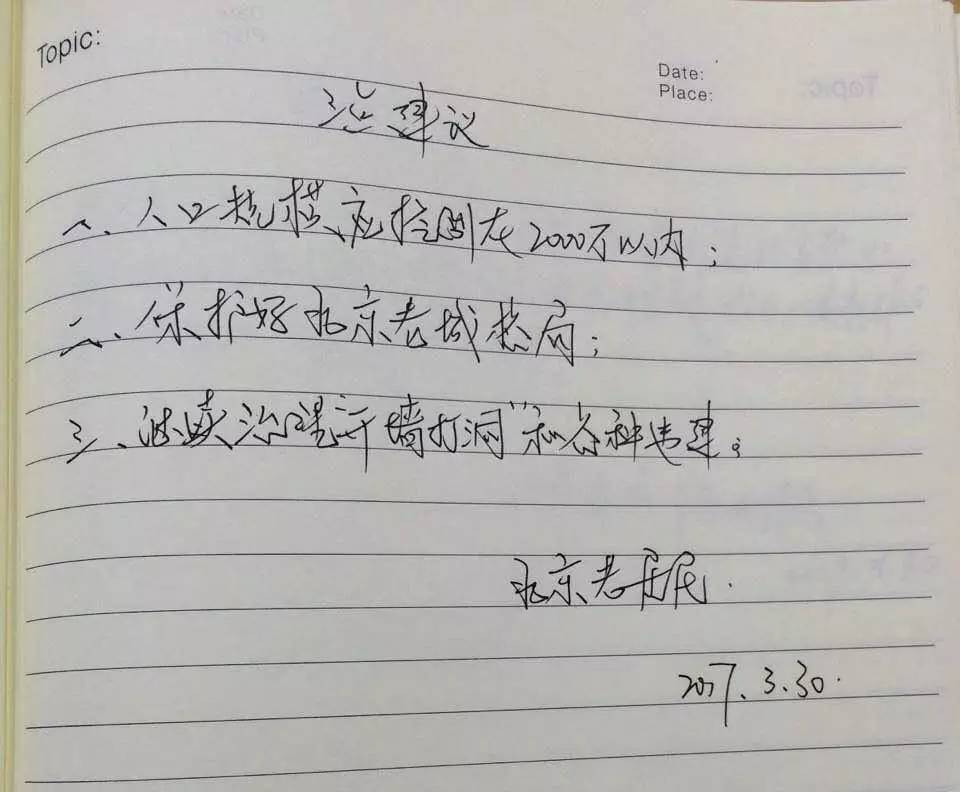 Topic:
Date:
Place:
三点建议
一、人口规模应控制在2000万以内；
二、保护好北京老城格局；
三、继续治理“开墙打洞”和各种违建。
北京老居民.
2017.3.30.